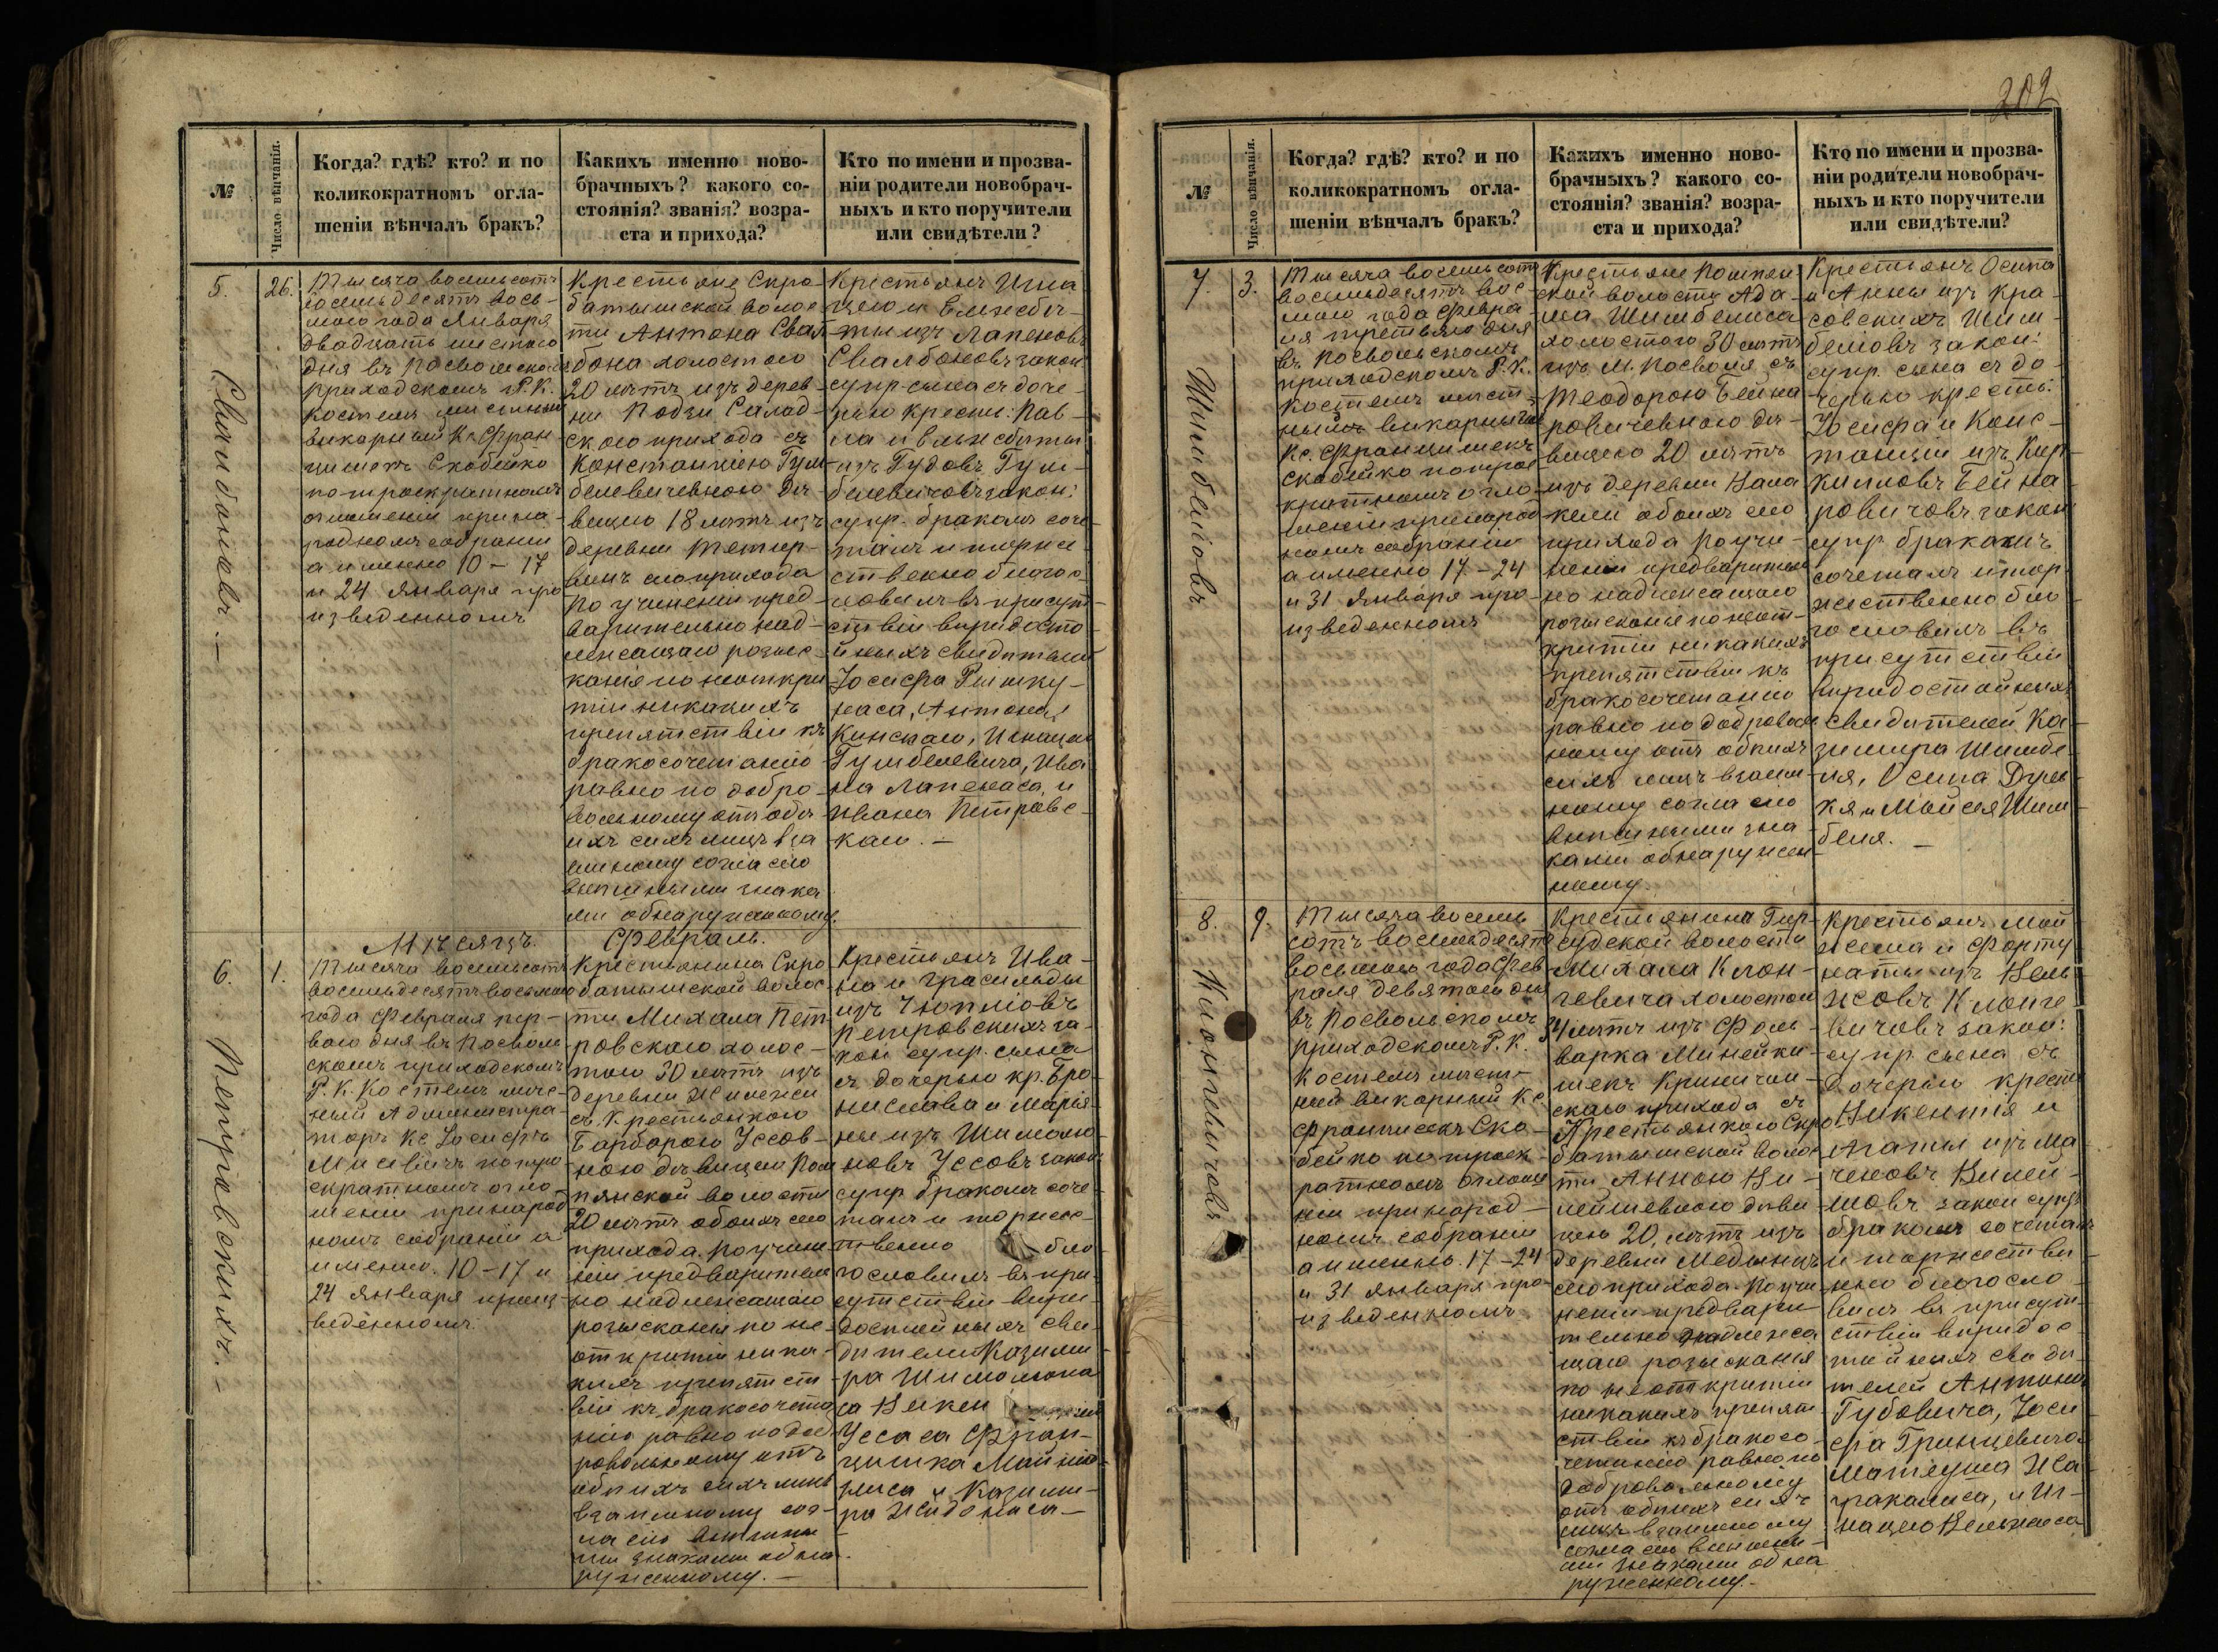 №
Число вѣнчанія.
Когда? гдѣ? кто? и по
коликократномъ огла-
шеніи вѣнчалъ бракъ?
Какихъ именно ново-
брачныхъ? какого со-
стоянія? званія? возра-
ста и прихода?
Кто по имени и прозва-
ніи родители новобрач-
ныхъ и кто поручители
или свидѣтели?
5.
26.
Тысяча восемьсотъ
восемьдесятъ вось-
мого года Января
двадцать шестого
дня въ Посвольскомъ
приходскомъ Р. К.
костелѣ мѣстный
викарный Кс. Фран
цишекъ Скобейко
по троекратномъ
оглашеніи при на-
родномъ собраніи
а именно 10 - 17
и 24 Января про
изведенномъ
Крестьянe Скро-
батышской волос
ти Антона Свал
бона холостого
20 лѣтъ изъ дерев-
ни Подзи Салад-
ского прихода съ
Констанціею Гум-
белевичевною дѣ-
вицею 18 лѣтъ изъ
деревни Тетир-
винъ сего прихода
по учиненіи пред-
варительно над-
лежащаго розыс-
канія по неоткры
тіи никакихъ
препятствіи къ
бракосочетанію
равно по добро-
вольному отъ обѣ
ихъ сихъ лицъ вза
имному согласію
внѣшными знака
ми обнаруженному.
Крестьянъ Игна
цею и Елисабѣ-
ты изъ Лапеновъ
Свалбоновъ закон
супр. сына съ доче-
рью крестьн: Пав-
ла и Ельжбѣты
изъ Гудовъ Гум-
белевичовъ закон:
супр. бракомъ соче-
талъ и торже-
ственно благос-
ловилъ въ присут-
ствіи виридосто-
йныхъ свидѣтелей
Іосифа Римку-
наса, Антона
Кинскаго, Игнацаго
Гумбелевича, Ива
на Лапенаса, и
Ивана Петровс-
каго. —
Свалбоновъ. —
Мѣсяцъ. Февраль.
6.
1.
Тысяча восемьсотъ
восемьдесятъ восьмого
года Февраля пер-
вого дня въ Посволь
скомъ приходскомъ
Р. К. Костелѣ мѣст-
ный Администра-
торъ Кс. Іосифъ
по тро-
екратномъ огло-
шеніи при народ
номъ собраніи а
именно 10 - 17 и
24 Января произ-
веденномъ.
Крестьянина Скро
батышской волос-
ти Михала Пет-
ровскаго холос-
того 30 лѣтъ изъ
деревни
съ Крестьянкою
Барборою Уссов-
ною дѣвицею Пом
пянской волости
20 лѣтъ обоихъ сего
прихода. По учине
ніи предварительн
но надлежащаго
розысканія по не-
открытіи ника-
кихъ препятст
віи къ бракосочета
нію равно по доб
ровольному отъ
обѣихъ сихъ лицъ
взаимному сог-
ласію внѣшны
ми знаками обна-
руженному. —
Крестьянъ Ива-
на и Грасильды
изъ
Петровскихъ за-
кон супр. сына
съ дочерью кр. Бро-
нислава и Марья-
ны изъ Шимолю-
новъ Уссовъ закон
супр. бракомъ соче-
талъ и торжес-
твенно бла
гословилъ въ при-
сутствіи вири-
достойныхъ сви-
дѣтелей Казими
ра Шимолюна
са Викен
Уссаса Фран-
цишка
и Казими-
ра Жидонаса —
Петровскихъ. —
202
№
Число вѣнчанія.
Когда? гдѣ? кто? и по
коликократномъ огла-
шеніи вѣнчалъ бракъ?
Какихъ именно ново-
брачныхъ? какого со-
стоянія? званія? возра-
ста и прихода?
Кто по имени и прозва-
ніи родители новобрач-
ныхъ и кто поручители
или свидѣтели?
7.
3.
Тысяча восемьсотъ
восемьдесятъ вос-
мого года Февра
ля третьяго дня
въ Посвольскомъ
приходскомъ Р. К.
Костелѣ мѣст-
нымъ викарнымъ
Кс. Францишекъ
Скобейко по трое
кратномъ огло-
шеніи при народ
номъ собраніи
а именно 17 - 24
и 31 Января про-
изведенномъ
Крестьяне Помпян-
ской волости Ада-
ма Шимбелиса
холостого 30 лѣтъ
изъ М. Посволя съ
Теодорою Бейна-
ровичевною дѣ-
вицею 20 лѣтъ
изъ деревни Нала
кели обоихъ сего
прихода по учи-
неніи предварительн
но надлежащаго
розысканія по неот-
крытіи никакихъ
препятствіи къ
бракосочетанію
равно по доброволь
ному отъ обѣихъ
сихъ лицъ взаим-
ному согласію
внѣшными зна-
ками обнаружен-
ному.
Крестьянъ Осипа
и Анны изъ Кра-
совскихъ Шим-
беловъ закон:
супр. сына съ до-
черью крестьн:
Іосифа и Конс-
танціи изъ Кир-
килловъ Бейна-
ровичовъ закон
супр. бракомъ
сочеталъ и тор-
жественно бла
гословилъ въ
присутствіи
виридостойныхъ
свидѣтелей Ка-
зимира Шимбе-
ля, Осипа Дуле-
кя и Мойсея Шим-
беля. —
Шимбеловъ
8.
9.
Тысяча восемь
сотъ восемьдесятъ
восьмого года Фев
раля девятого дня
въ Посвольскомъ
приходскомъ Р. К.
Костелѣ мѣст-
ный викарный Кс.
Францишекъ Ско-
бейко по троек-
ратномъ оглоше
ніи при народ-
номъ собраніи
а именно 17 - 24
и 31 Января про-
изведенномъ.
Крестьянина Гир-
судской волости
Михала Клон-
гевича холостого
34 лѣтъ изъ Фоль
варка Минейки-
шекъ Криничан-
скаго прихода съ
Крестьянкою Скро
батышской волос
ти Анною Ви-
лейшевною дѣви
цею 20. лѣтъ изъ
деревни Медынъ
сего прихода. По учи
неніи предвари-
тельно надлежа
щаго розысканія
по неоткрытіи
никакихъ препят
ствіи къ бракосо-
четанію равно по
добровольному
отъ обѣихъ сихъ
лицъ взаимному
согласію внѣшны-
ми знаками обна
руженному. —
Крестьянъ Мой
жеша и Форту
наты изъ Вель
жовъ Клонге-
вичовъ закон:
супр. сына съ
дочерью крестн
Викентія и
Агаты изъ Ма
ченовъ Вилей-
шовъ закон супр
бракомъ сочеталъ
и торжестве-
нно благосло-
вилъ въ присут-
ствіи виридос-
тойныхъ сви дѣ-
телей Антона
Губовича, Іоси
фа Гринцевича
Матеуша Жа
гракалиса, и Иг-
нацею Вельжиса
Клонгевичовъ